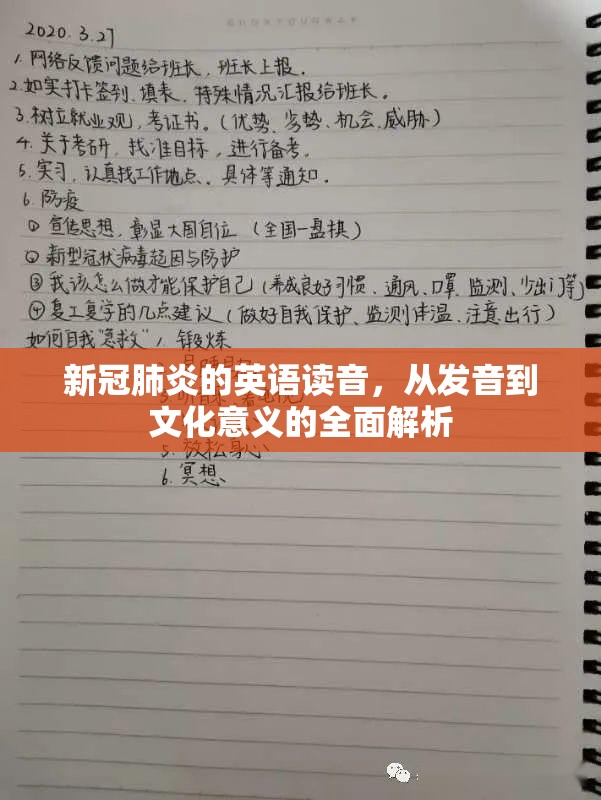 2020.3.27
1. 网络反馈问题给班长，班长上报。
2.如实打卡签到、填表，特殊情况汇报给班长。
3.树立就业观，考证书。(优势、劣势、机会、威胁)
4. 关于考研，找准目标，进行备考。
5. 实习，认真找工作地点、具体等通知。
6. 防疫
① 宣传思想，彰显大国自位 (全国一盘棋)
② 新型冠状病毒起因与防护
③ 我该怎么做才能保护自己(养成良好习惯、通风、口罩、监测、少出门等)
④ 复工复学的几点建议 (做好自我保护、监测体温、注意出行)
如何自我"急救" 1. 锻炼
新冠肺炎的英语读音，从发音到
文化意义的全面解析
5. 放松身心
6. 冥想